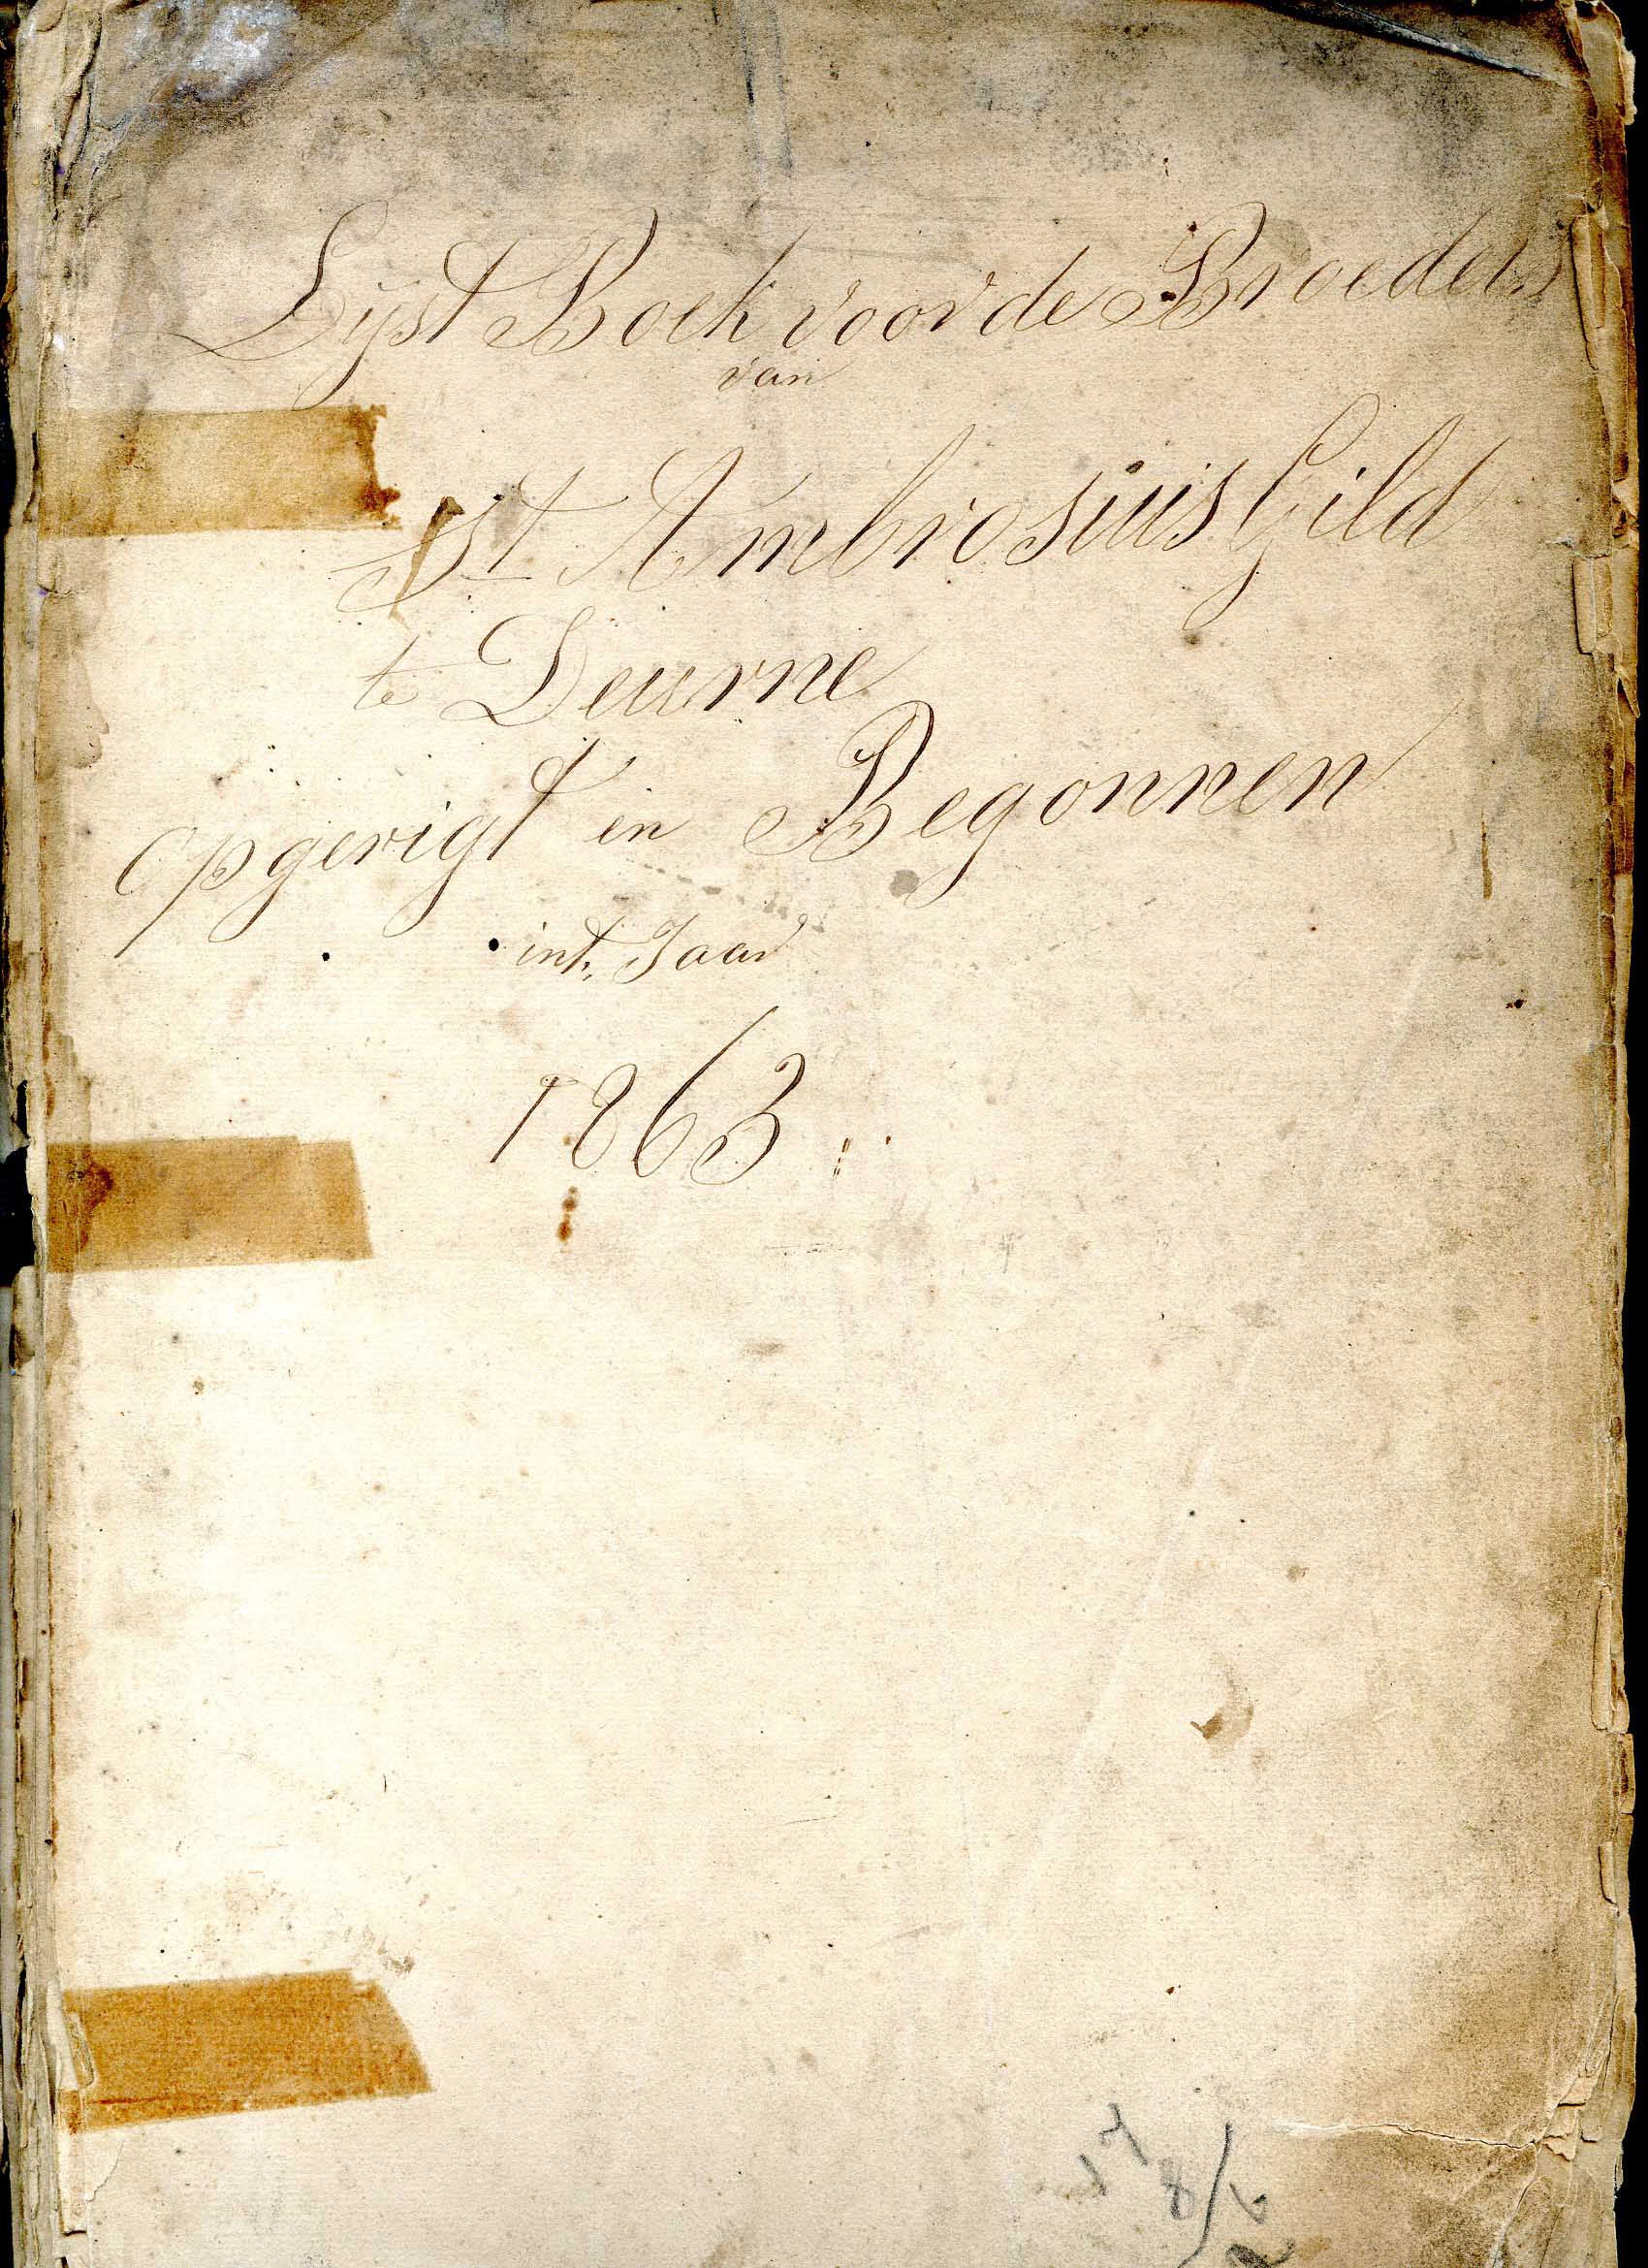 Lijst Boek voor de Broeders
van
St Ambrosius Gild
te Deurne
opgerigt en Begonnen
int Jaar
1863